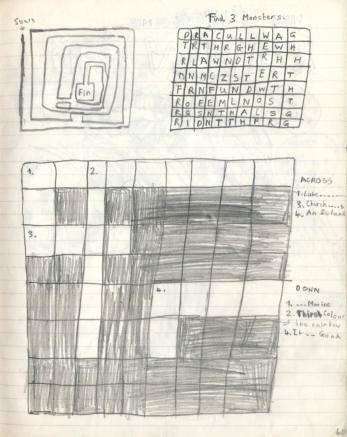 Start
Find 3 Monsters.
Fin
D R A C U L L W A G
T R T H R G H E W H
R L A W N D T R H H
M N M C Z S T E R T
F R N F U N D W T H
R O F E M L N O S T
R G S N T H A L S G
R I D N T T H F R G
1. 2.
3.
4.
ACROSS
1. Lake
3. Church
4. An Island
DOWN
1. ... Marine
2. Third Colour
of the rainbow
4. It ... Good